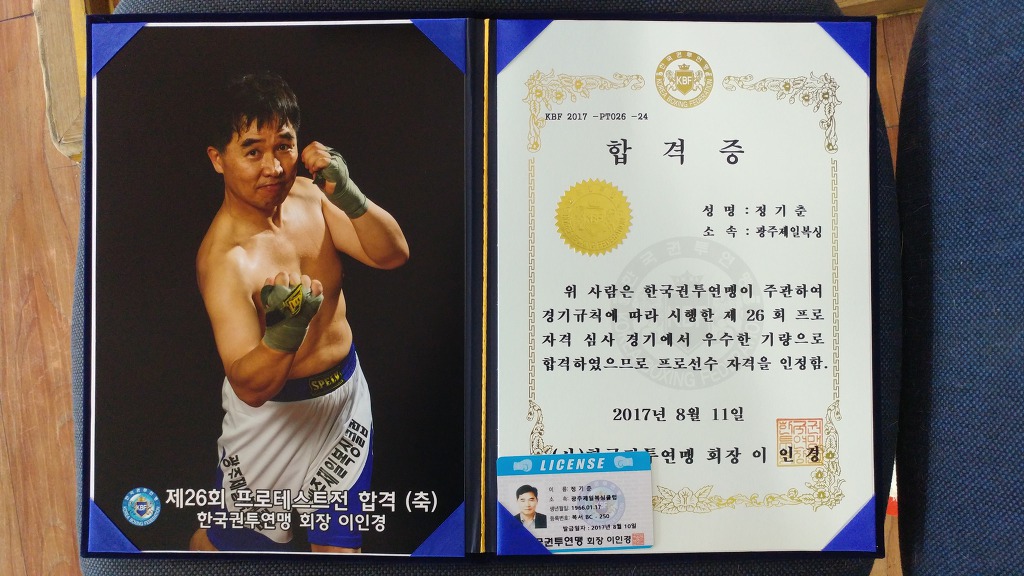 SPEED
광주제일
제일복싱클럽
제26회 프로테스트전 합격 (축)
한국권투연맹 회장 이인경
KBF
KBF 2017 -PT026 -24
합 격 증
성 명 : 정기춘
소 속 : 광주제일복싱
위 사람은 한국권투연맹이 주관하여
경기규칙에 따라 시행한 제 26 회 프로
자격 심사 경기에서 우수한 기량으로
합격하였으므로 프로선수 자격을 인정함.
2017년 8월 11일
한국권투연맹 회장 이 인 경
LICENSE
이 름: 정 기 춘
소 속: 광주제일복싱클럽
생년월일: 1966.01.17
등록번호: 복서 BC - 250
발급일자 : 2017년 8월 10일
국권투연맹 회장 이인경